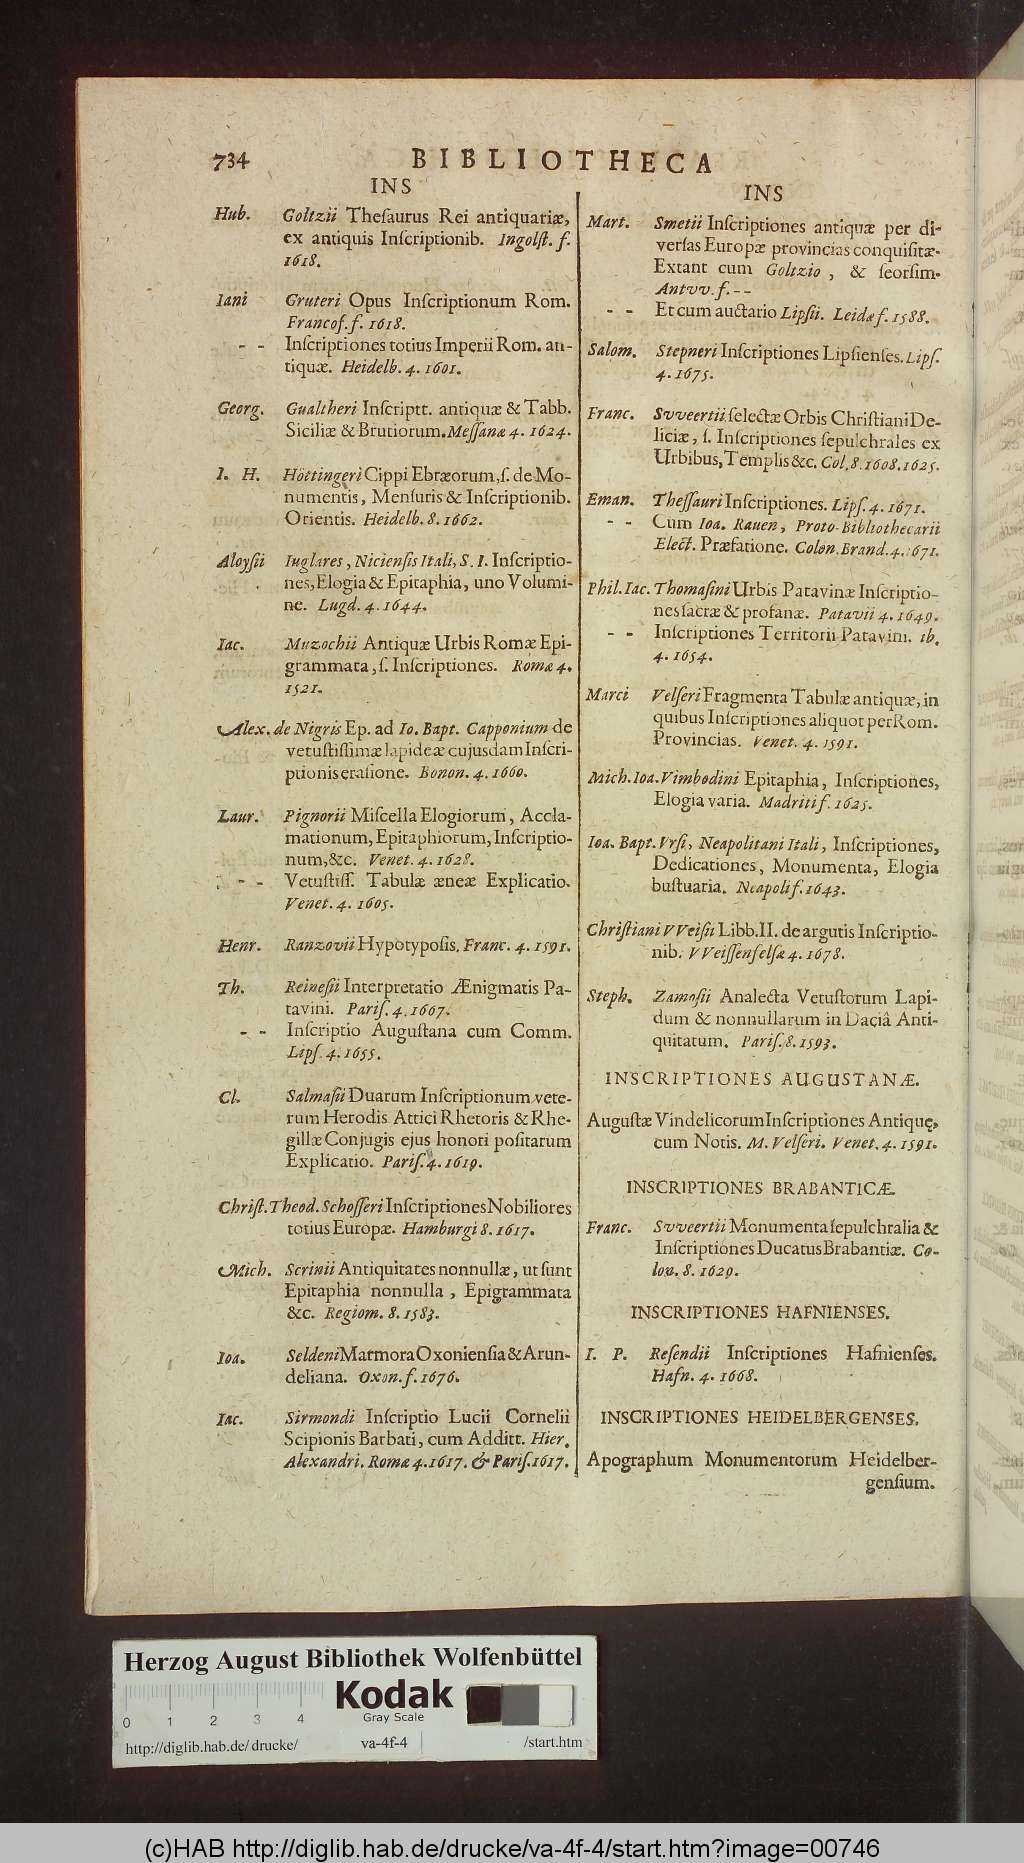 734
BIBLIOTHECA
INS
Hub. Goltzii Theſaurus Rei antiquariæ,
ex antiquis Inſcriptionib. Ingolſt. f.
1618.
Iani Gruteri Opus Inſcriptionum Rom.
Francof. f. 1618.
- - Inſcriptiones totius Imperii Rom. an-
tiquæ. Heidelb. 4. 1601.
Georg. Gualtheri Inſcriptt. antiquæ & Tabb.
Siciliæ & Brutiorum. Meſſanæ 4. 1624.
I. H. Höttingeri Cippi Ebræorum, ſ. de Mo-
numentis, Menſuris & Inſcriptionib.
Orientis. Heidelb. 8. 1662.
Aloyſii Iuglares, Nicienſis Itali, S. I. Inſcriptio-
nes, Elogia & Epitaphia, uno Volumi-
ne. Lugd. 4. 1644.
Iac. Muzochii Antiquæ Urbis Romæ Epi-
grammata, ſ. Inſcriptiones. Romæ 4.
1521.
Alex. de Nigris Ep. ad Io. Bapt. Capponium de
vetuſtiſſimæ lapideæ cujusdam Inſcri-
ptionis eraſione. Bonon. 4. 1660.
Laur. Pignorii Miſcella Elogiorum, Accla-
mationum, Epitaphiorum, Inſcriptio-
num, &c. Venet. 4. 1628.
- - Vetuſtiſſ. Tabulæ æneæ Explicatio.
Venet. 4. 1605.
Henr. Ranzovii Hypotypoſis. Franc. 4. 1591.
Th. Reineſii Interpretatio Ænigmatis Pa-
tavini. Pariſ. 4. 1667.
- - Inſcriptio Auguſtana cum Comm.
Lipſ. 4. 1655.
Cl. Salmaſii Duarum Inſcriptionum vete-
rum Herodis Attici Rhetoris & Rhe-
gillæ Conjugis ejus honori poſitarum
Explicatio. Pariſ. 4. 1619.
Chriſt. Theod. Schoſſeri Inſcriptiones Nobiliores
totius Europæ. Hamburgi 8. 1617.
Mich. Scrinii Antiquitates nonnullæ, ut ſunt
Epitaphia nonnulla, Epigrammata
&c. Regiom. 8. 1583.
Ioa. Seldeni Marmora Oxonienſia & Arun-
deliana. Oxon. f. 1676.
Iac. Sirmondi Inſcriptio Lucii Cornelii
Scipionis Barbati, cum Additt. Hier.
Alexandri. Romæ 4. 1617. & Pariſ. 1617.
INS
Mart. Smetii Inſcriptiones antiquæ per di-
verſas Europæ provincias conquiſitæ.
Extant cum Goltzio, & ſeorſim.
Antvv. f. - -
- - Et cum auctario Lipſii. Leidæ f. 1588.
Salom. Stepneri Inſcriptiones Lipſienſes. Lipſ.
4. 1675.
Franc. Svveertii ſelectæ Orbis Chriſtiani De-
liciæ, ſ. Inſcriptiones ſepulchrales ex
Urbibus, Templis &c. Col. 8. 1608. 1625.
Eman. Theſſauri Inſcriptiones. Lipſ. 4. 1671.
- - Cum Ioa. Rauen, Proto-Bibliothecarii
Elect. Præfatione. Colon. Brand. 4. 1671.
Phil. Iac. Thomaſini Urbis Patavinæ Inſcriptio-
nes ſacræ & profanæ. Patavii 4. 1649.
- - Inſcriptiones Territorii Patavini. ib.
4. 1654.
Marci Velſeri Fragmenta Tabulæ antiquæ, in
quibus Inſcriptiones aliquot per Rom.
Provincias. Venet. 4. 1591.
Mich. Ioa. Vimbodini Epitaphia, Inſcriptiones,
Elogia varia. Madriti f. 1625.
Ioa. Bapt. Vrſi, Neapolitani Itali, Inſcriptiones,
Dedicationes, Monumenta, Elogia
buſtuaria. Neapoli f. 1643.
Chriſtiani VVeiſii Libb. II. de argutis Inſcriptio-
nib. VVeiſſenfelſæ 4. 1678.
Steph. Zamoſii Analecta Vetuſtorum Lapi-
dum & nonnullarum in Daciâ Anti-
quitatum. Pariſ. 8. 1593.
INSCRIPTIONES AUGUSTANÆ.
Auguſtæ Vindelicorum Inſcriptiones Antiquę,
cum Notis. M. Velſeri. Venet. 4. 1591.
INSCRIPTIONES BRABANTICÆ.
Franc. Svveertii Monumenta ſepulchralia &
Inſcriptiones Ducatus Brabantiæ. Co-
lon. 8. 1629.
INSCRIPTIONES HAFNIENSES.
I. P. Reſendii Inſcriptiones Hafnienſes.
Hafn. 4. 1668.
INSCRIPTIONES HEIDELBERGENSES.
Apographum Monumentorum Heidelber-
genſium.
Herzog August Bibliothek Wolfenbüttel
Kodak
Gray Scale
0 1 2 3 4
http://diglib.hab.de/drucke/ va-4f-4 /start.htm
(c)HAB http://diglib.hab.de/drucke/va-4f-4/start.htm?image=00746